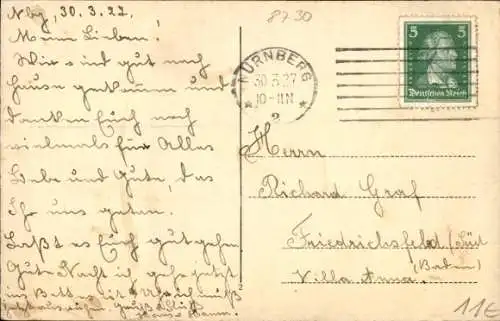 Nbg, 30.3.27.
Mein Lieben!
Wir sind gut nach
Hause gekommen und
danken Euch noch
vielmals für Alles
Liebe und Gute, das
Ihr uns getan.
Laßt es Euch gut gehen
Gute Nacht ich gehe jetzt
ins Bett
8730
NÜRNBERG
30.3.27
10-11N
2
5 5
Deutsches Reich
Herrn
Richard Graf
Friedrichsfeld/Süd
(Baden)
Villa Anna.
11€